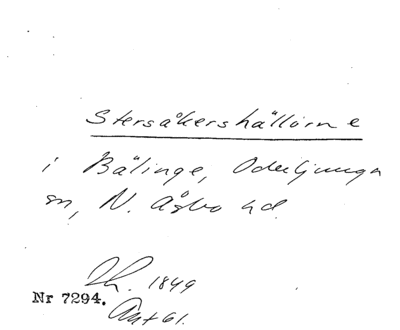 Stersåkershällorne
i Bälinge, Oderljunga
sn, N. Åsbo hd.
Th. 1849
Nr 7294.
Ant 61.